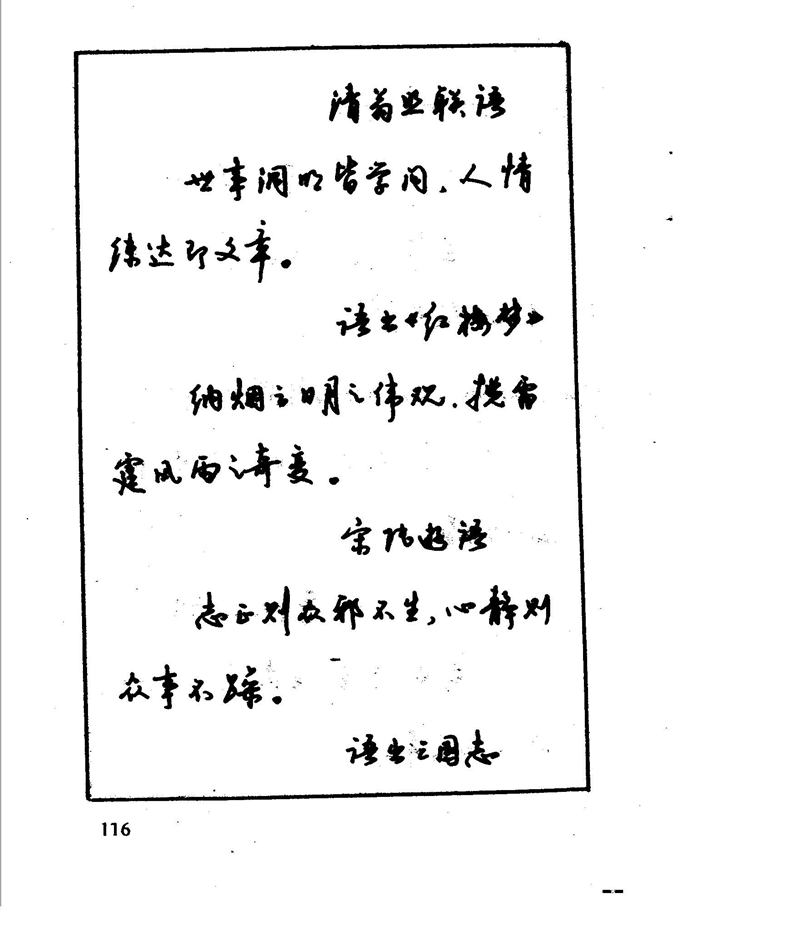 清 联语
世事洞明皆学问，人情
练达即文章。
语出《红楼梦》
纳烟云日月之伟观，揽雷
霆风雨之奇变。
宋陆游语
志正则众邪不生，心静则
众事不躁。
语出三国志
116